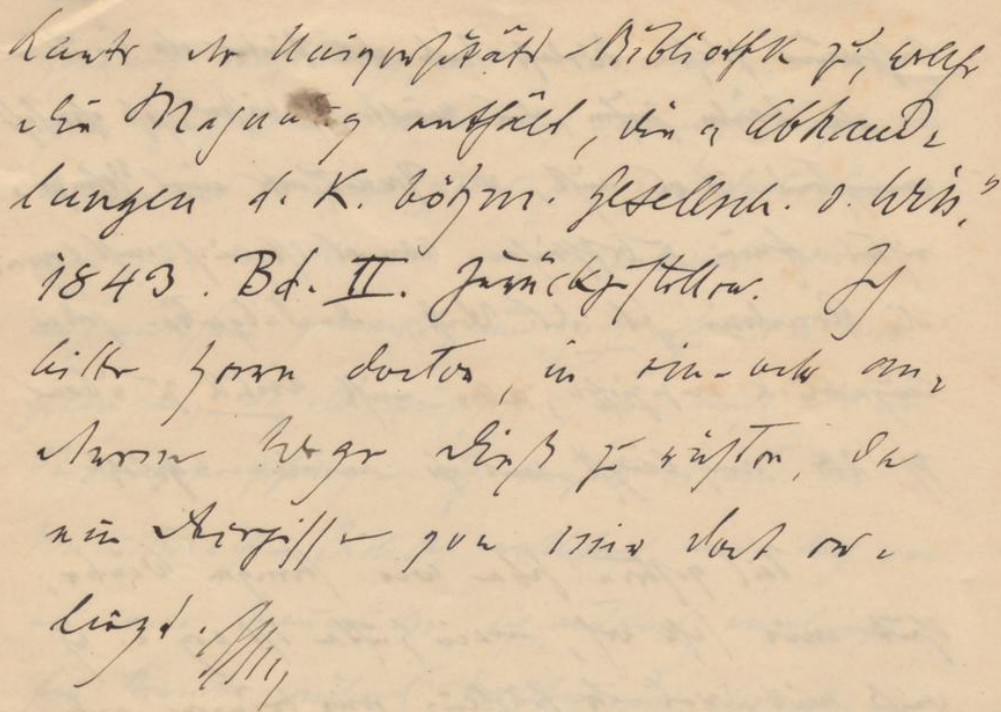 karte der Universitäts-Bibliothek zu, welche
die Mahnung enthält, die „Abhand-
lungen d. K. böhm. Gesellsch. d. Wiss."
1843. Bd. II. zurückzustellen. Ich
bitte Herrn Doctor, in ein- oder an-
derem Wege dieß zu
ein von mir dort er-
liegt.